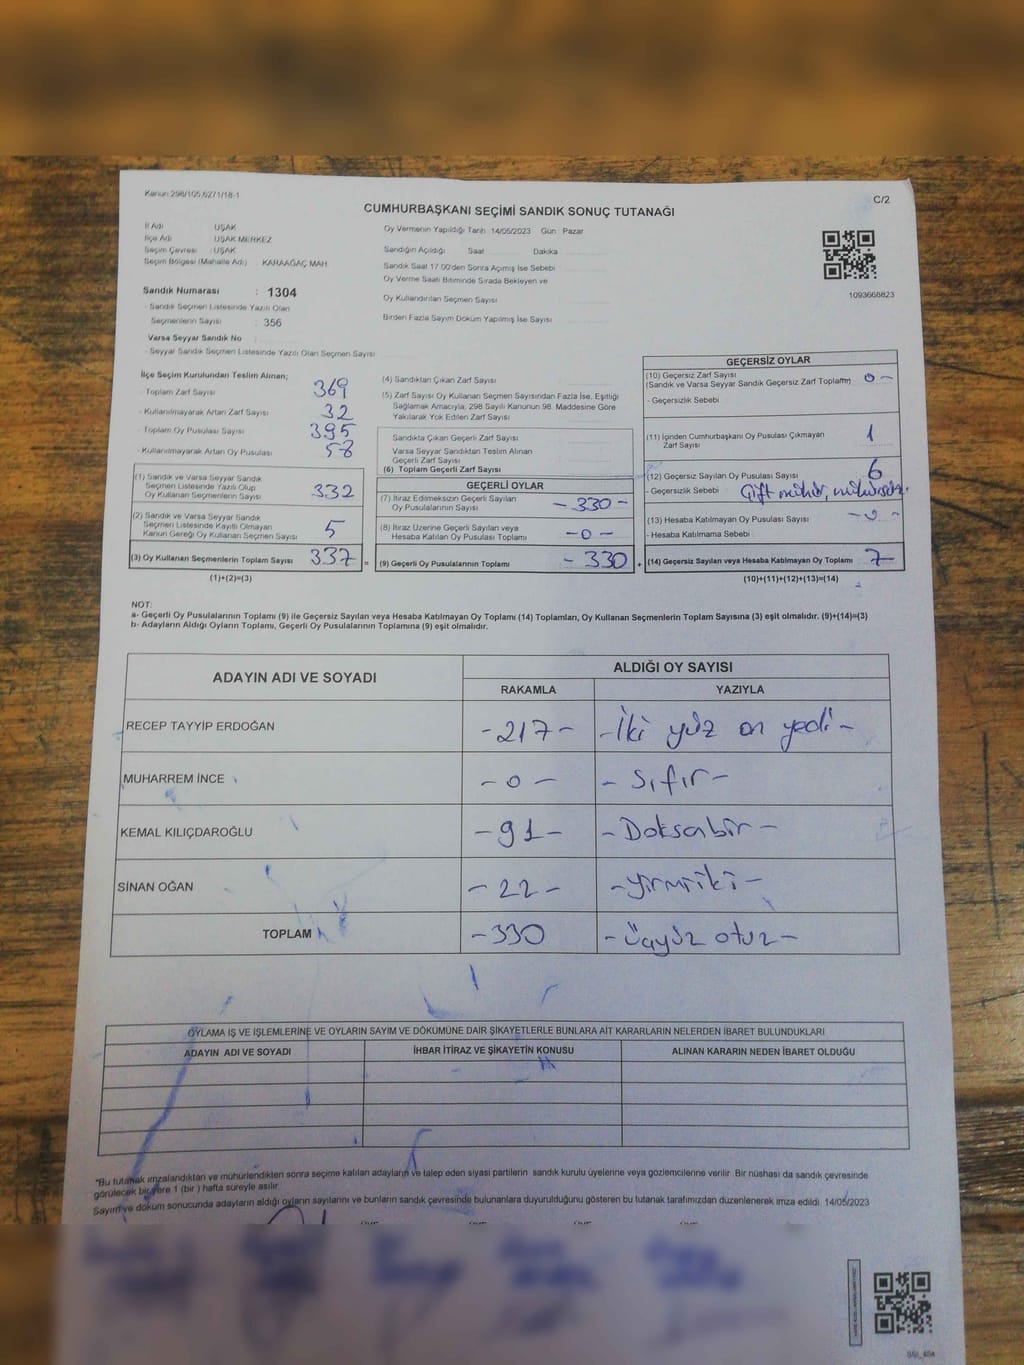 Kanun 298/105,6271/18-1
C/2
CUMHURBAŞKANI SEÇİMİ SANDIK SONUÇ TUTANAĞI
İl Adı : UŞAK
İlçe Adı : UŞAK MERKEZ
Seçim Çevresi : UŞAK
Seçim Bölgesi (Mahalle Adı) : KARAAĞAÇ MAH.
Sandık Numarası : 1304
- Sandık Seçmen Listesinde Yazılı Olan
Seçmenlerin Sayısı : 356
Varsa Seyyar Sandık No :
- Seyyar Sandık Seçmen Listesinde Yazılı Olan Seçmen Sayısı
Oy Vermenin Yapıldığı Tarih :14/05/2023 Gün : Pazar
Sandığın Açıldığı Saat Dakika
Sandık Saat 17.00'den Sonra Açılmış İse Sebebi
Oy Verme Saati Bitiminde Sırada Bekleyen ve
Oy Kullandırılan Seçmen Sayısı
Birden Fazla Sayım Döküm Yapılmış İse Sayısı
1093668823
İlçe Seçim Kurulundan Teslim Alınan;
- Toplam Zarf Sayısı 369
- Kullanılmayarak Artan Zarf Sayısı 32
- Toplam Oy Pusulası Sayısı 395
- Kullanılmayarak Artan Oy Pusulası 58
(1) Sandık ve Varsa Seyyar Sandık
Seçmen Listesinde Yazılı Olup
Oy Kullanan Seçmenlerin Sayısı 332
(2) Sandık ve Varsa Seyyar Sandık
Seçmen Listesinde Kayıtlı Olmayan
Kanun Gereği Oy Kullanan Seçmen Sayısı 5
(3) Oy Kullanan Seçmenlerin Toplam Sayısı 337
(1)+(2)=(3)
(4) Sandıktan Çıkan Zarf Sayısı
(5) Zarf Sayısı Oy Kullanan Seçmen Sayısından Fazla İse, Eşitliği
Sağlamak Amacıyla, 298 Sayılı Kanunun 98. Maddesine Göre
Yakılarak Yok Edilen Zarf Sayısı
Sandıkta Çıkan Geçerli Zarf Sayısı
Varsa Seyyar Sandıktan Teslim Alınan
Geçerli Zarf Sayısı
(6) Toplam Geçerli Zarf Sayısı
GEÇERLİ OYLAR
(7) İtiraz Edilmeksizin Geçerli Sayılan
Oy Pusulalarının Sayısı - 330 -
(8) İtiraz Üzerine Geçerli Sayılan veya
Hesaba Katılan Oy Pusulası Toplamı - 0 -
= (9) Geçerli Oy Pusulalarının Toplamı - 330 +
GEÇERSİZ OYLAR
(10) Geçersiz Zarf Sayısı
(Sandık ve Varsa Seyyar Sandık Geçersiz Zarf Toplamı) 0 -
- Geçersizlik Sebebi
(11) İçinden Cumhurbaşkanı Oy Pusulası Çıkmayan
Zarf Sayısı 1
(12) Geçersiz Sayılan Oy Pusulası Sayısı 6
- Geçersizlik Sebebi : Çift mühür, mühürsüz.
(13) Hesaba Katılmayan Oy Pusulası Sayısı - 0 -
- Hesaba Katılmama Sebebi
(14) Geçersiz Sayılan veya Hesaba Katılmayan Oy Toplamı 7
(10)+(11)+(12)+(13)=(14)
NOT:
a- Geçerli Oy Pusulalarının Toplamı (9) ile Geçersiz Sayılan veya Hesaba Katılmayan Oy Toplamı (14) Toplamları, Oy Kullanan Seçmenlerin Toplam Sayısına (3) eşit olmalıdır. (9)+(14)=(3)
b- Adayların Aldığı Oyların Toplamı, Geçerli Oy Pusulalarının Toplamına (9) eşit olmalıdır.
ADAYIN ADI VE SOYADI ALDIĞI OY SAYISI
RAKAMLA YAZIYLA
RECEP TAYYİP ERDOĞAN - 217 - - İki yüz on yedi -
MUHARREM İNCE - 0 - - Sıfır -
KEMAL KILIÇDAROĞLU - 91 - - Doksabir -
SİNAN OĞAN - 22 - - yirmiiki -
TOPLAM - 330 - üçyüz otuz -
OYLAMA İŞ VE İŞLEMLERİNE VE OYLARIN SAYIM VE DÖKÜMÜNE DAİR ŞİKAYETLERLE BUNLARA AİT KARARLARIN NELERDEN İBARET BULUNDUKLARI
ADAYIN ADI VE SOYADI İHBAR İTİRAZ VE ŞİKAYETİN KONUSU ALINAN KARARIN NEDEN İBARET OLDUĞU
"Bu tutanak imzalandıktan ve mühürlendikten sonra seçime katılan adayların ve talep eden siyasi partilerin sandık kurulu üyelerine veya gözlemcilerine verilir. Bir nüshası da sandık çevresinde
görülecek bir yere 1 (bir ) hafta süreyle asılır.
Sayım ve döküm sonucunda adayların aldığı oyların sayılarını ve bunların sandık çevresinde bulunanlara duyurulduğunu gösteren bu tutanak tarafımızdan düzenlenerek imza edildi. 14/05/2023